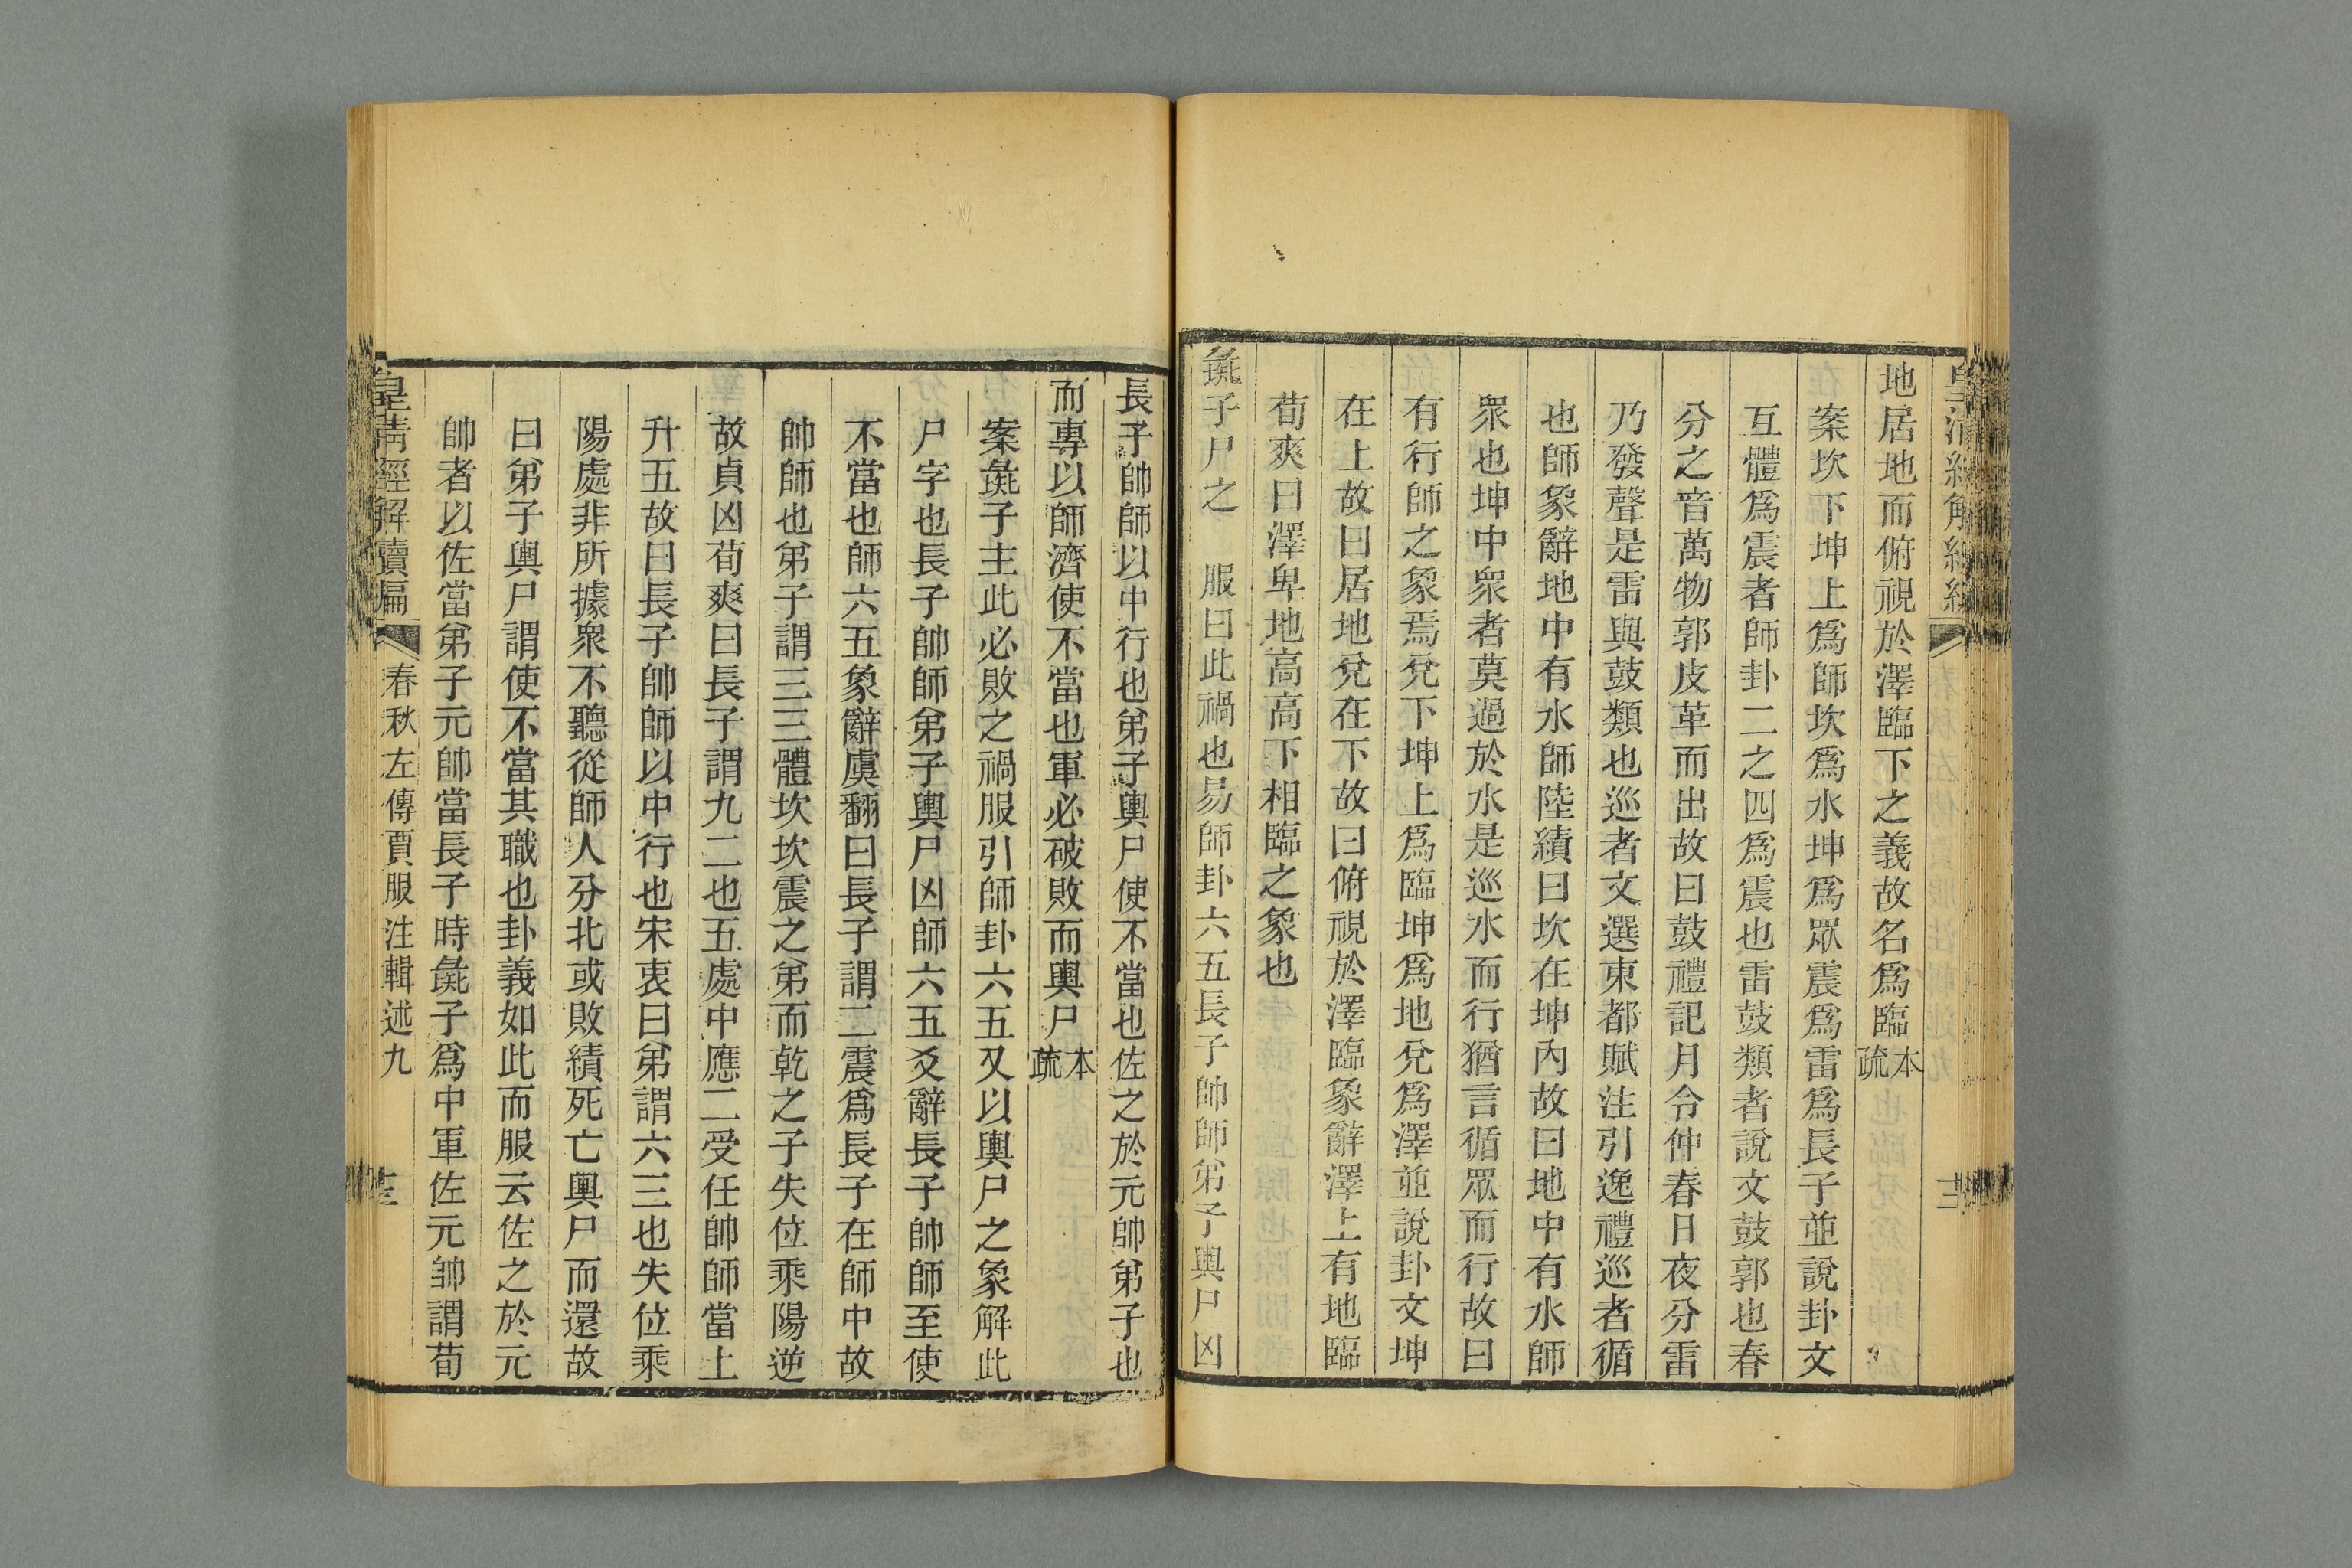 地居地而俯視於澤臨下之義故名爲臨本疏
案坎下坤上爲師坎爲水坤爲眾震爲雷爲長子並說卦文
互體爲震者師卦二之四爲震也雷鼓類者說文鼓郭也春
分之音萬物郭皮革而出故曰鼓禮記月令仲春日夜分雷
乃發聲是雷與鼓類也巡者文選東都賦注引逸禮巡者循
也師象辭地中有水師陸績曰坎在坤內故曰地中有水師
眾也坤中眾者莫過於水是巡水而行猶言循眾而行故曰
有行師之象焉兌下坤上爲臨坤爲地兌爲澤並說卦文坤
在上故曰居地兌在下故曰俯視於澤臨象辭澤上有地臨
荀爽曰澤卑地高高下相臨之象也
彘子尸之　服曰此禍也易師卦六五長子帥師弟子輿尸凶
長子帥師以中行也弟子輿尸使不當也佐之於元帥弟子也
而專以師濟使不當也軍必破敗而輿尸本疏
案彘子主此必敗之禍服引師卦六五又以輿尸之象解此
尸字也長子帥師弟子輿尸凶師六五爻辭長子帥師至使
不當也師六五象辭虞翻曰長子謂二震爲長子在師中故
帥師也弟子謂三三體坎坎震之弟而乾之子失位乘陽逆
故貞凶荀爽曰長子謂九二也五處中應二受任帥師當上
升五故曰長子帥師以中行也宋衷曰弟謂六三也失位乘
陽處非所據眾不聽從師人分北或敗績死亡輿尸而還故
曰弟子輿尸謂使不當其職也卦義如此而服云佐之於元
帥者以佐當弟子元帥當長子時彘子爲中軍佐元帥謂荀
皇清經解續編　春秋左傳賈服注輯述九